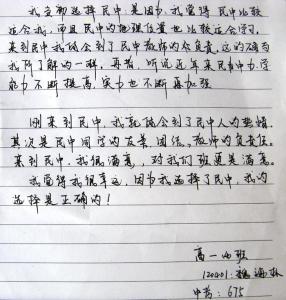 我立初选择民中,是因为,我觉得民中比较
适合我,而且民中的地理位置也比较适合学习,
来到民中我体会到了民中教师的负责,这的确与
我所了解的一样,再者,听说近年来民中中力学
能力不断提高,实力也不断再加强
刚来到民中,我就体会到了民中人的热情
其次是民中同学的友善、团结、教师的负责任。
来到民中,我很满意,对我们班更是满意。
我觉得我很幸运,因为我选择了民中,我的
选择是正确的!
高一四班
120401
中考:675